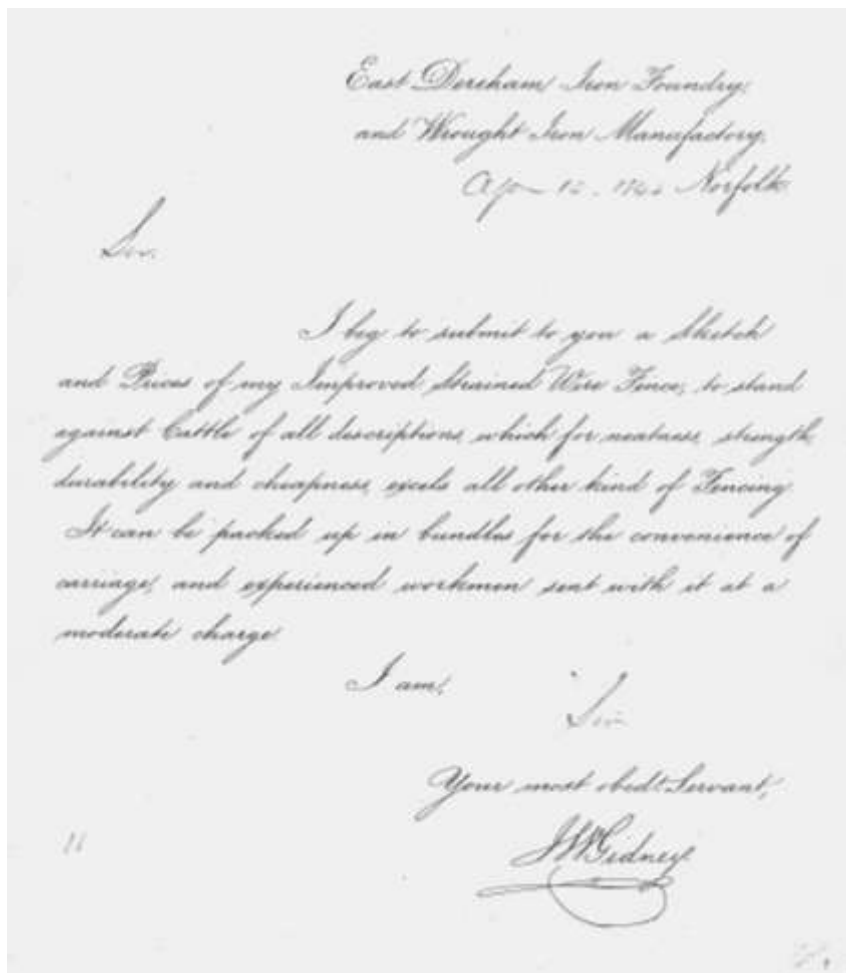 East Dereham Iron Foundry,
and Wrought Iron Manufactory,
Norfolk.
Sir,
I beg to submit to you a Sketch
and Prices of my Improved Strained Wire Fence, to stand
against Cattle of all descriptions, which for neatness, strength,
durability and cheapness, excels all other kind of Fencing.
It can be packed up in bundles for the convenience of
carriage, and experienced workmen sent with it at a
moderate charge
I am,
Sir
Your most obedt. Servant,
J W Gidney